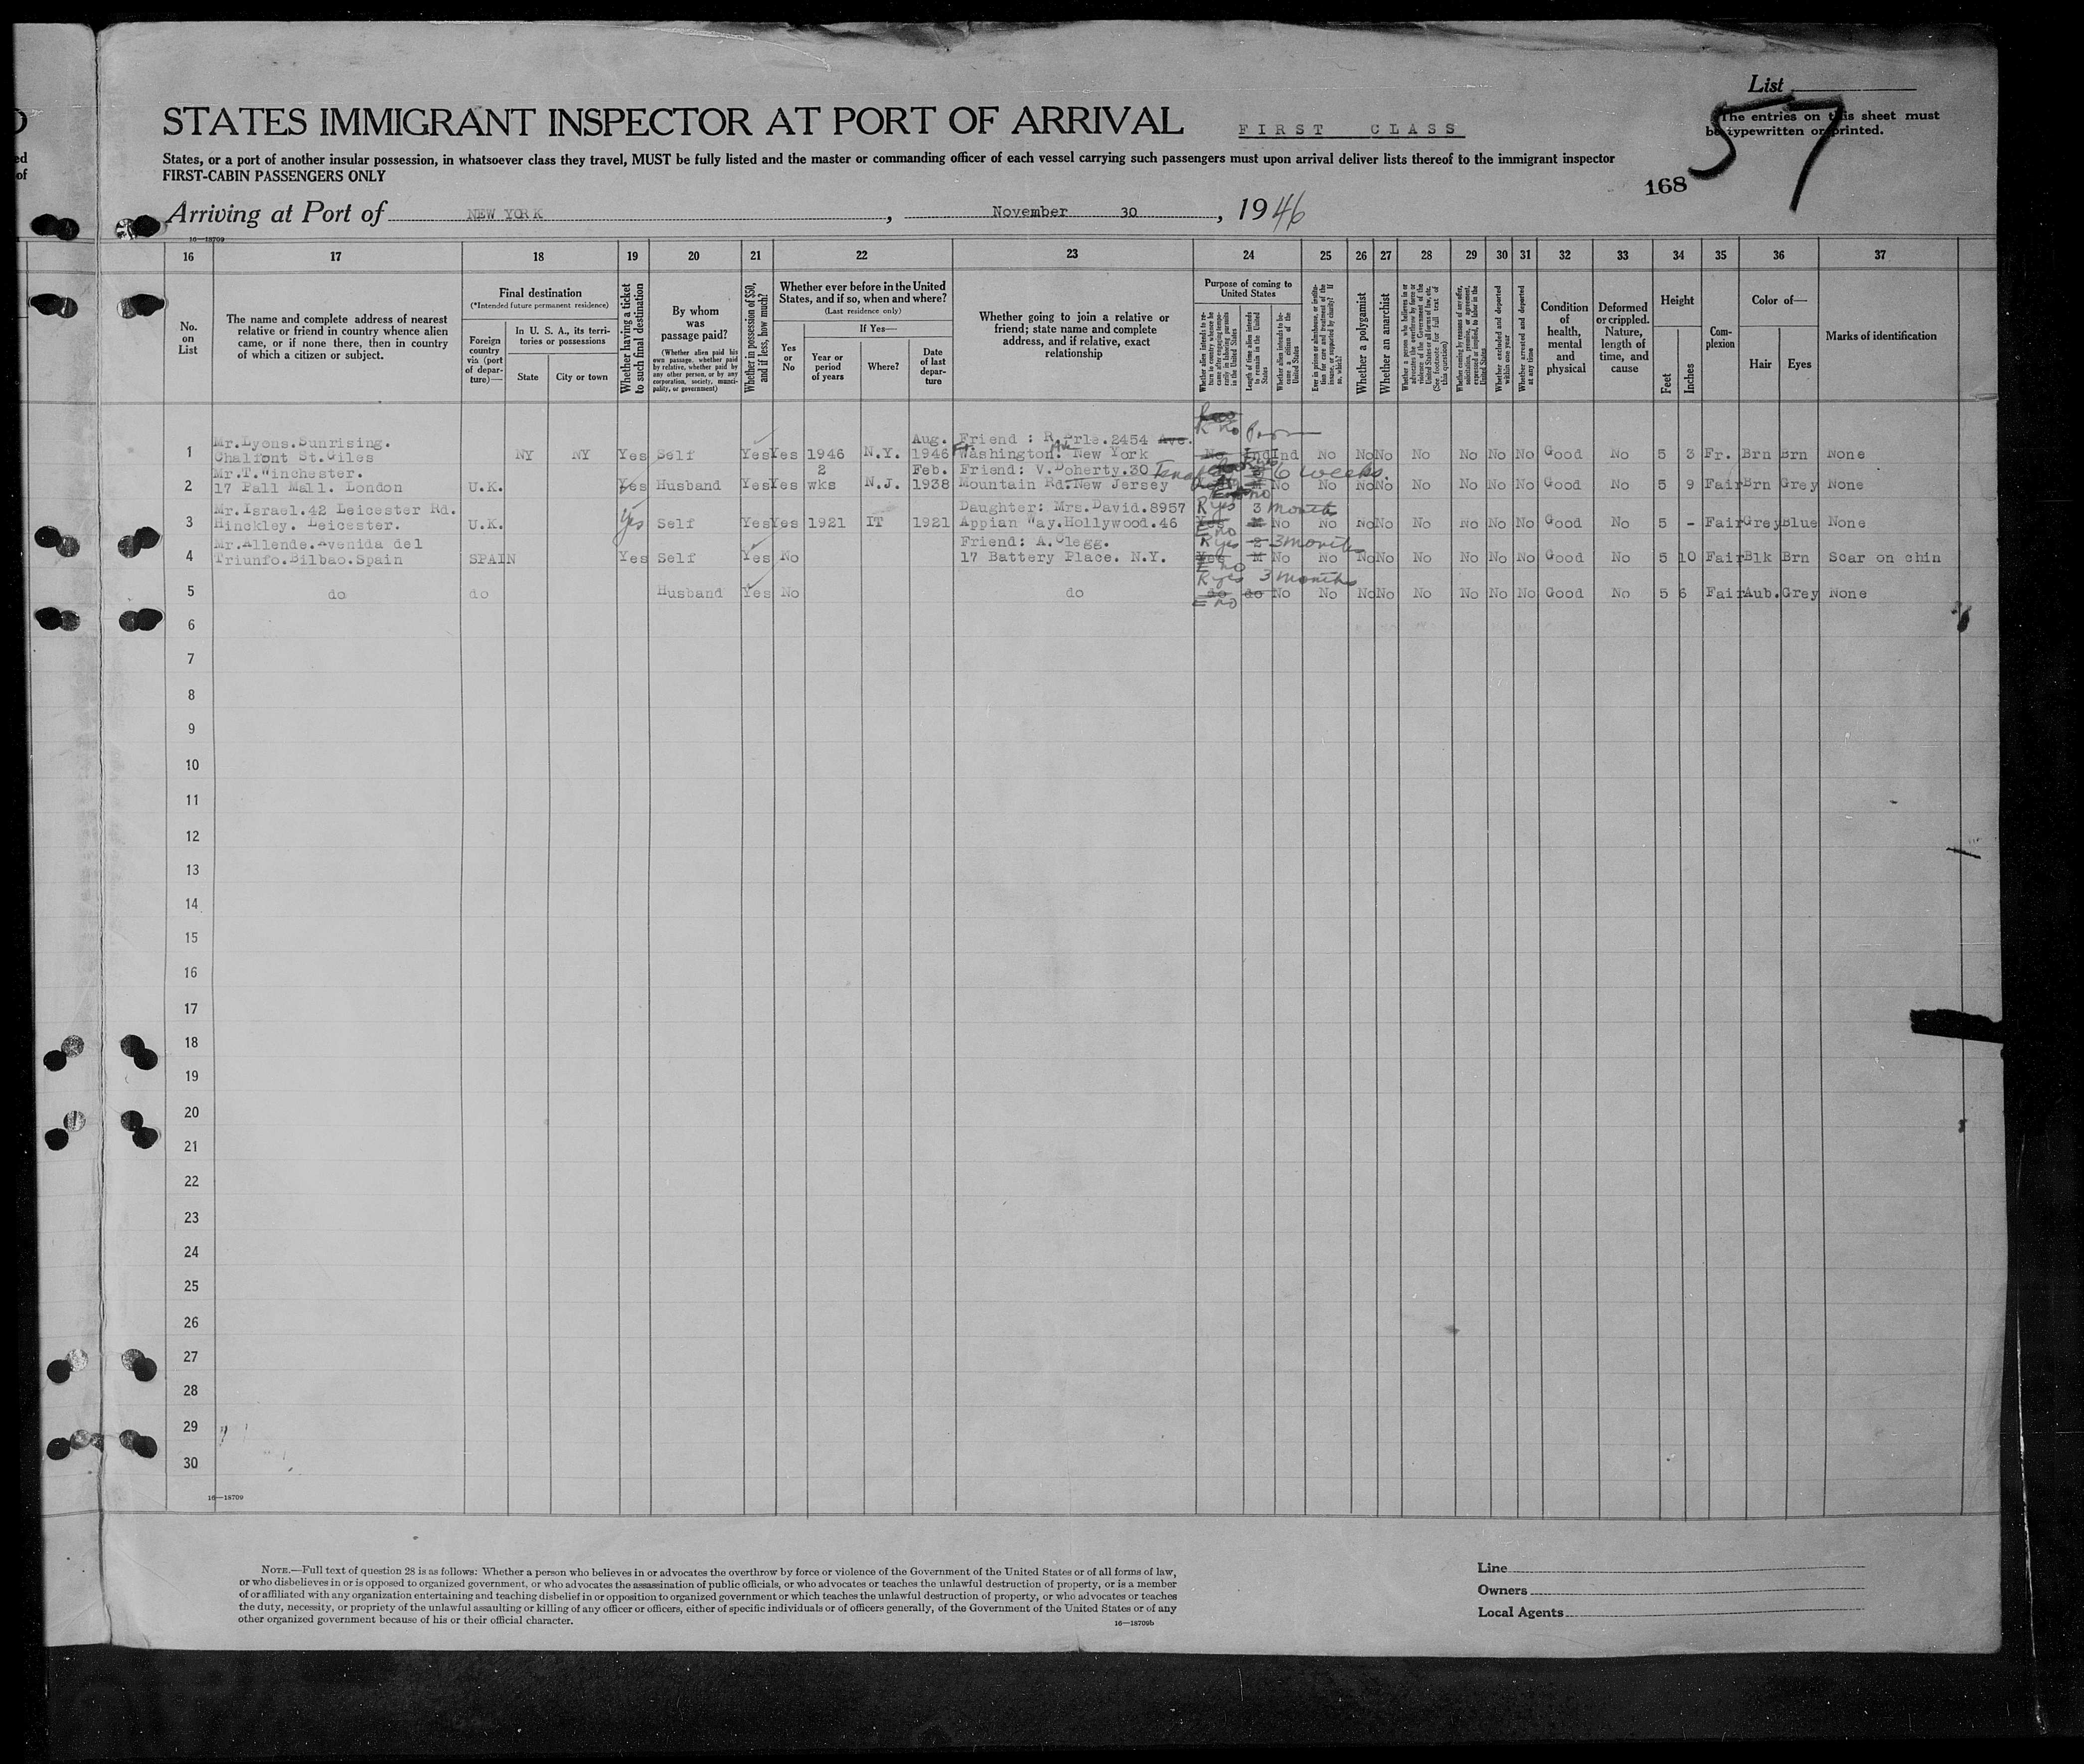 List
57
The entries on this sheet must
be typewritten or printed.
STATES IMMIGRANT INSPECTOR AT PORT OF ARRIVAL
FIRST CLASS
States, or a port of another insular possession, in whatsoever class they travel, MUST be fully listed and the master or commanding officer of each vessel carrying such passengers must upon arrival deliver lists thereof to the immigrant inspector
FIRST-CABIN PASSENGERS ONLY
168
Arriving at Port of NEW YORK, November 30, 1946
16—18709
16 17 18 19 20 21 22 23 24 25 26 27 28 29 30 31 32 33 34 35 36 37
No. on List
The name and complete address of nearest relative or friend in country whence alien came, or if none there, then in country of which a citizen or subject.
Final destination
(*Intended future permanent residence)
Foreign country via (port of departure)—
In U. S. A., its territories or possessions
State
City or town
Whether having a ticket to such final destination
By whom was passage paid?
(Whether alien paid his own passage, whether paid by relative, whether paid by any other person, or by any corporation, society, municipality, or government)
Whether in possession of $50, and if less, how much?
Whether ever before in the United States, and if so, when and where?
(Last residence only)
Yes or No
If Yes—
Year or period of years
Where?
Date of last departure
Whether going to join a relative or friend; state name and complete address, and if relative, exact relationship
Purpose of coming to United States
Whether alien intends to return to country whence he came after engaging temporarily in laboring pursuits in the United States
Length of time alien intends to remain in the United States
Whether alien intends to become a citizen of the United States
Ever in prison or almshouse, or institution for care and treatment of the insane, or supported by charity? If so, which?
Whether a polygamist
Whether an anarchist
Whether a person who believes in or advocates the overthrow by force or violence of the Government of the United States or all forms of law, etc. (See footnote for full text of this question)
Whether coming by reason of any offer, solicitation, promise, or agreement, expressed or implied, to labor in the United States
Whether excluded and deported within one year
Whether arrested and deported at any time
Condition of health, mental and physical
Deformed or crippled. Nature, length of time, and cause
Height
Feet
Inches
Complexion
Color of—
Hair
Eyes
Marks of identification
1 Mr.Lyons.Sunrising. Chalfont St.Giles NY NY Yes Self Yes Yes 1946 N.Y. Aug. 1946 Friend : R.Prle.2454 Ave. Washington. New York R no No Ind Ind No No No No No No No Good No 5 3 Fr. Brn Brn None
2 Mr.T.Winchester. 17 Pall Mall. London U.K. Yes Husband Yes Yes 2 wks N.J. Feb. 1938 Friend: V.Doherty.30 Mountain Rd.New Jersey 6 weeks. M No No No No No No No No Good No 5 9 Fair Brn Grey None
3 Mr.Israel.42 Leicester Rd. Hinckley. Leicester. U.K. Yes Self Yes Yes 1921 IT 1921 Daughter: Mrs.David.8957 Appian Way.Hollywood.46 R yes 3 months Yes M No E no No No No No No No No Good No 5 - Fair Grey Blue None
4 Mr.Allende.Avenida del Triunfo.Bilbao.Spain SPAIN Yes Self Yes No Friend: A.Clegg. 17 Battery Place. N.Y. R yes 2 3 months Yes M No E no No No No No No No No Good No 5 10 Fair Blk Brn Scar on chin
5 do do Husband Yes No do R yes 3 months do do No E no No No No No No No No Good No 5 6 Fair Aub. Grey None
6
7
8
9
10
11
12
13
14
15
16
17
18
19
20
21
22
23
24
25
26
27
28
29
30
16—18709
NOTE.—Full text of question 28 is as follows: Whether a person who believes in or advocates the overthrow by force or violence of the Government of the United States or of all forms of law,
or who disbelieves in or is opposed to organized government, or who advocates the assassination of public officials, or who advocates or teaches the unlawful destruction of property, or is a member
of or affiliated with any organization entertaining and teaching disbelief in or opposition to organized government or which teaches the unlawful destruction of property, or who advocates or teaches
the duty, necessity, or propriety of the unlawful assaulting or killing of any officer or officers, either of specific individuals or of officers generally, of the Government of the United States or of any
other organized government because of his or their official character.
16—18709b
Line
Owners
Local Agents